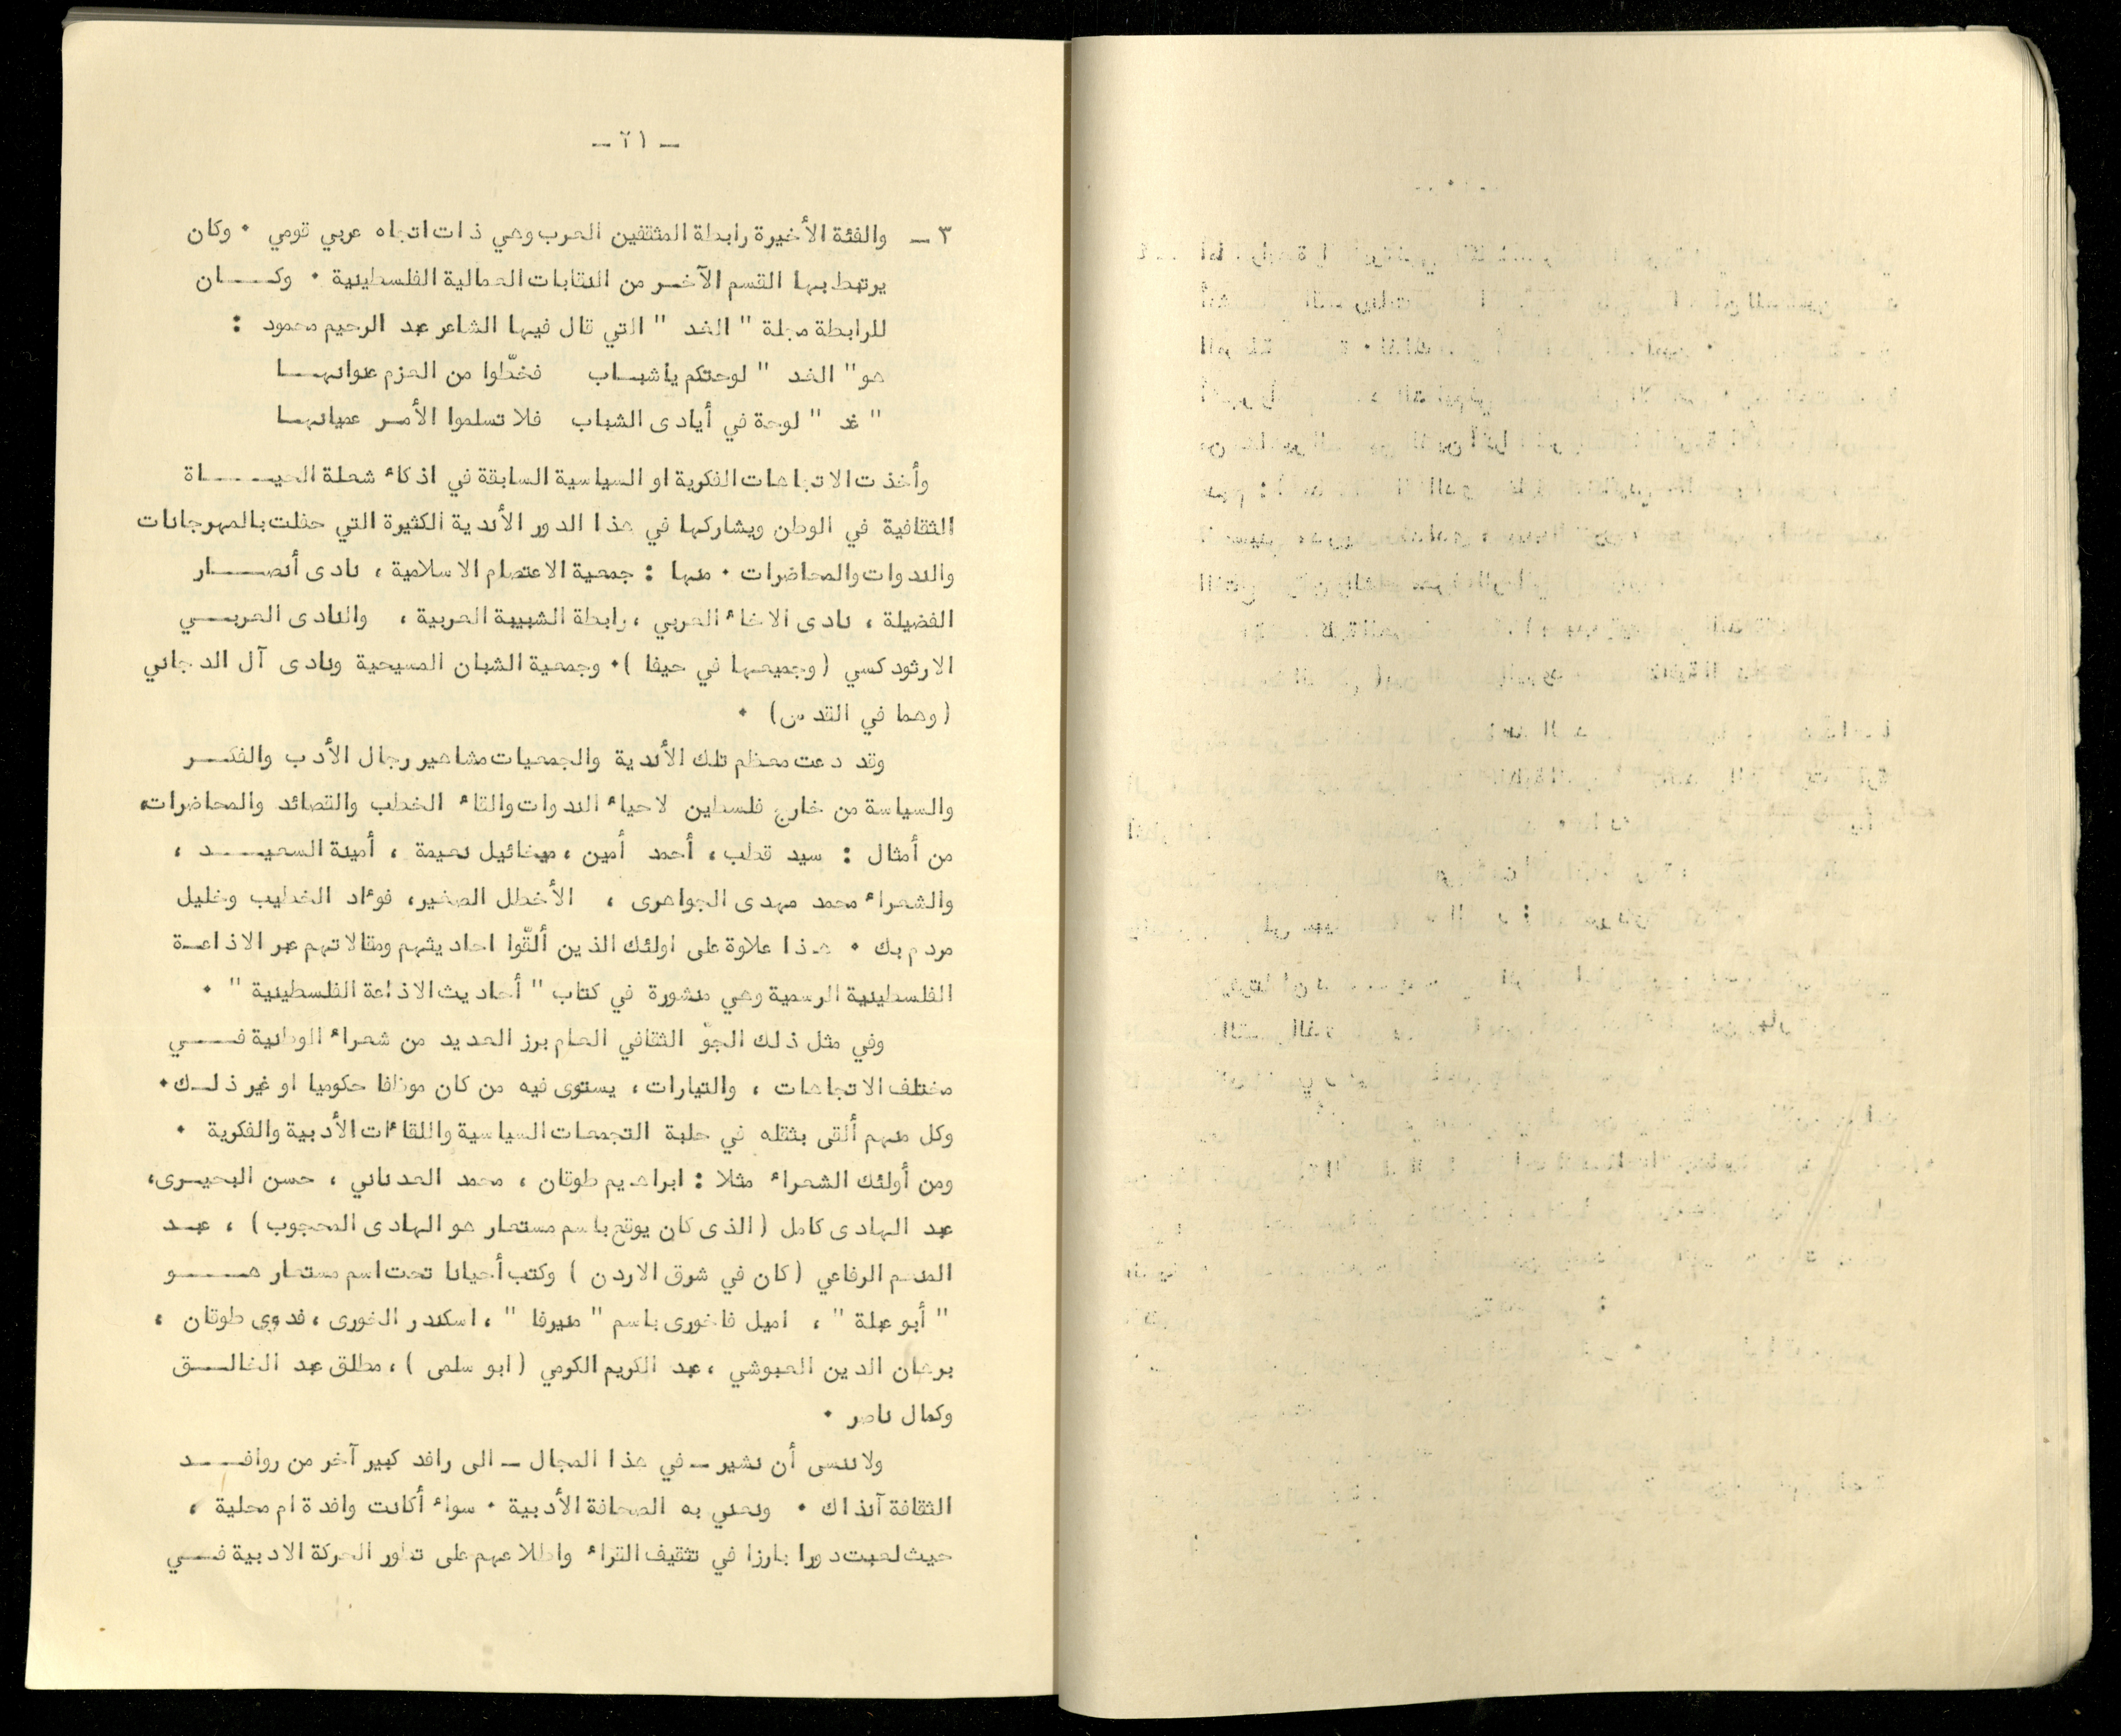 - ٢١ -
٣ - والفئة الأخيرة رابطة المثقفين العرب وهي ذات اتجاه عربي قومي . وكان
يرتبط بها القسم الآخر من النقابات العمالية الفلسطينية . وكـــان
للرابطة مجلة " الغد " التي قال فيها الشاعر عبد الرحيم محمود :
هو" الغد " لوحتكم ياشبـاب فخطّوا من الحزم عنوانهـــا
" غد " لوحة في أيادى الشباب فلا تسلموا الأمـر عميانهـا
وأخذت الاتجاهات الفكرية او السياسية السابقة في اذكاء شعلة الحيــــاة
الثقافية في الوطن ويشاركها في هذا الدور الأندية الكثيرة التي حفلت بالمهرجانات
والندوات والمحاضرات . منها : جمعية الاعتصام الاسلامية ، نادى أنصـــار
الفضيلة ، نادى الاخاء العربي ، رابطة الشبيبة العربية ، والنادى العربــي
الارثودكسي (وجميعها في حيفا ). وجمعية الشبان المسيحية ونادى آل الدجاني
(وهما في القدس) .
وقد دعت معظم تلك الأندية والجمعيات مشاهير رجال الأدب والفكــر
والسياسة من خارج فلسطين لاحياء الندوات والقاء الخطب والقصائد والمحاضرات،
من أمثال : سيد قطب، أحمد أمين ، ميخائيل نعيمة ، أمينة السعيــــد ،
والشعراء محمد مهدى الجواهرى ، الأخطل الصغير، فوءاد الخطيب وخليل
مردم بك . هذا علاوة على اولئك الذين ألقّوا احاديثهم ومقالاتهم عبر الاذاعـة
الفلسطينية الرسمية وهي منشورة في كتاب " أحاديث الاذاعة الفلسطينية " .
وفي مثل ذلك الجوّ الثقافي العام برز العديد من شعراء الوطنية فـــي
مختلف الاتجاهات ، والتيارات ، يستوى فيه من كان موظفا حكوميا او غير ذلـك.
وكل منهم ألقى بثقله في حلبة التجمعات السياسية واللقاءات الأدبية والفكرية .
ومن أولئك الشعراء مثلا : ابراهيم طوقان ، محمد العدناني ، حسن البحيـرى،
عبد الهادى كامل (الذى كان يوقع باسم مستعار هو الهادى المحجوب) ، عبـد
المنعم الرفاعي (كان في شرق الاردن ) وكتب أحيانا تحت اسم مستعار هــــو
" أبو عبلة " ، اميل فاخورى باسم " منيرفا " ، اسكندر الخورى ، فدوى طوقان ،
برهان الدين العبوشي ، عبد الكريم الكرمي (ابو سلمى ) ، مطلق عبد الخالــق
وكمال ناصر .
ولاننسى أن نشير - في هذا المجال - الى رافد كبير آخر من روافـــد
الثقافة آنذاك . ونعني به الصحافة الأدبية . سواء أكانت وافدة ام محلية ،
حيث لعبت دورا بارزا في تثقيف القراء واطلاعهم على تطور الحركة الادبية فــي